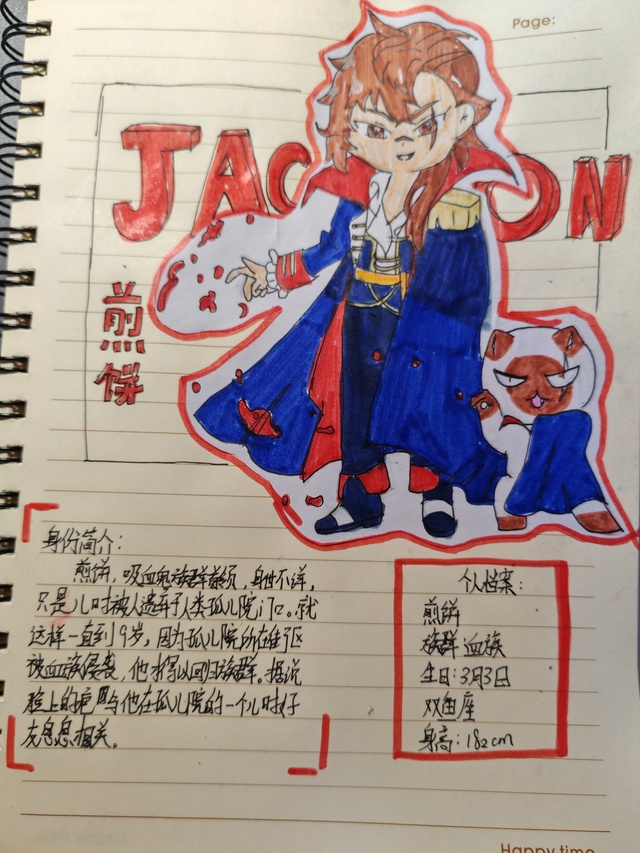 Page:
JAC ON
煎
饼
身份简介:
煎饼,吸血鬼族群首领,身世不详,
只是儿时被人遗弃于人类孤儿院门口。就
这样一直到19岁,因为孤儿院所在
被血族侵袭,他才得以回归族群。据说
脸上的 与他在孤儿院的一个儿时好
友息息相关。
个人档案:
煎饼
族群:血族
生日:3月3日
双鱼座
身高:182cm
Happy time